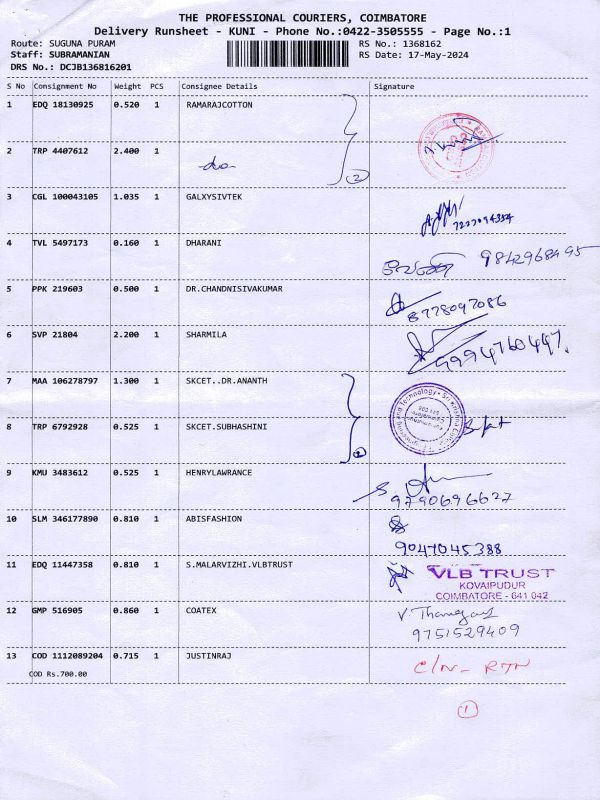 THE PROFESSIONAL COURIERS, COIMBATORE
Delivery Runsheet - KUNI - Phone No.:0422-3505555 - Page No.:1
Route: SUGUNA PURAM
Staff: SUBRAMANIAN
DRS No.: DCJB136816201
RS No.: 1368162
RS Date: 17-May-2024
S No Consignment No Weight PCS Consignee Details Signature
1 EDQ 18130925 0.520 1 RAMARAJCOTTON
2 TRP 4407612 2.400 1 do
2
3 CGL 100043105 1.035 1 GALXYSIVTEK
4 TVL 5497173 0.160 1 DHARANI 9842968495
5 PPK 219603 0.500 1 DR.CHANDNISIVAKUMAR
8778097086
6 SVP 21804 2.200 1 SHARMILA
9994760447.
7 MAA 106278797 1.300 1 SKCET..DR.ANANTH
8 TRP 6792928 0.525 1 SKCET.SUBHASHINI
2
9 KMU 3483612 0.525 1 HENRYLAWRANCE
9790696627
10 SLM 346177890 0.810 1 ABISFASHION
9047045388
11 EDQ 11447358 0.810 1 S.MALARVIZHI.VLBTRUST VLB TRUST
KOVAIPUDUR
COIMBATORE - 641 042
12 GMP 516905 0.860 1 COATEX
9751529409
13 COD 1112089204 0.715 1 JUSTINRAJ C/N - RTN
COD Rs.700.00
1